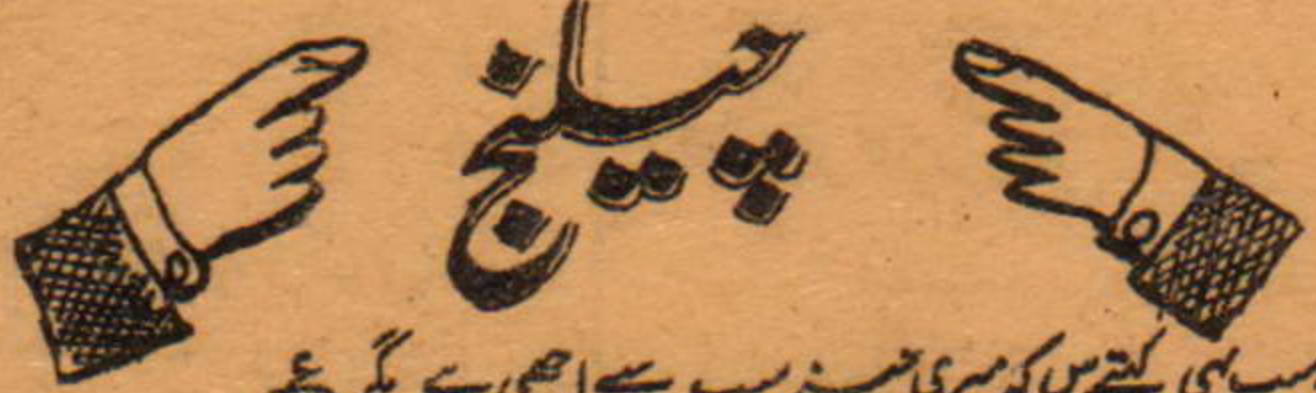 چیلنج
سب ہی کہتے ہیں کہ میری سب سے اچھی ہے مگر